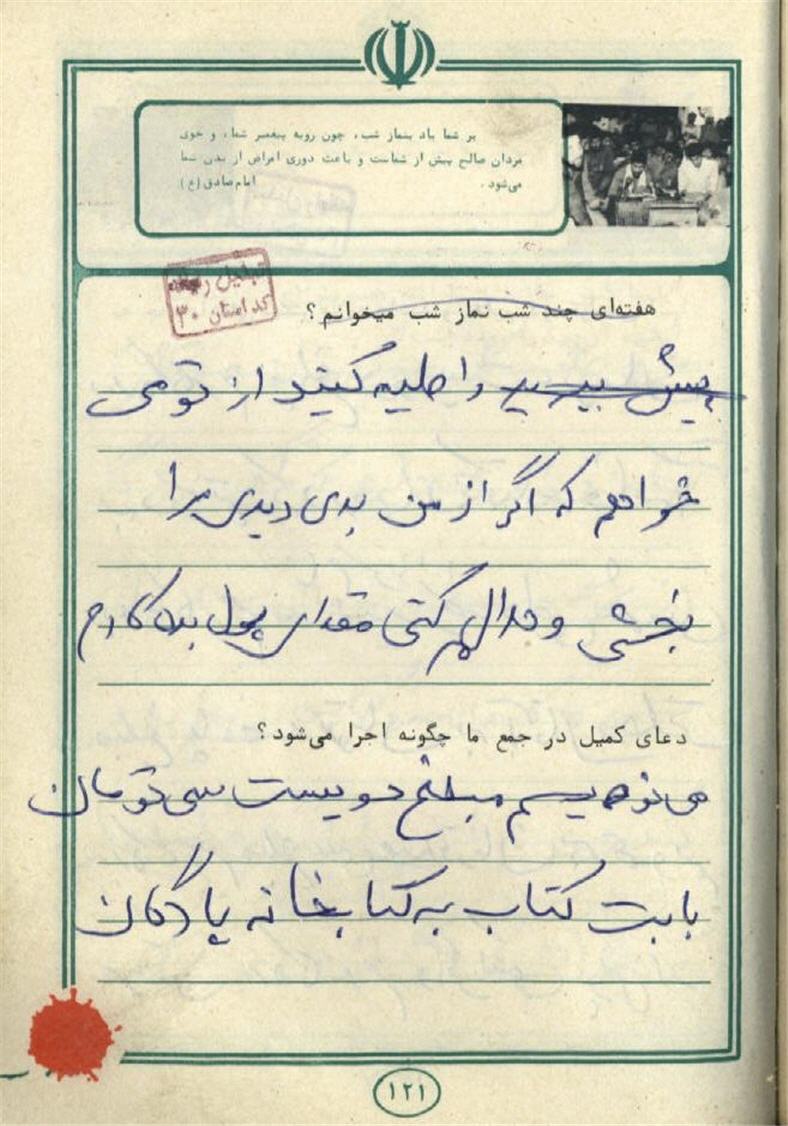 بر شما باد بنماز شب، چون رویه پیغمبر شما، و خوی
مردان صالح پیش از شماست و باعث دوری امراض از بدن شما
می‌شود. امام‌صادق (ع)
کد استان ۳۰
هفته‌ای چند شب نماز شب میخوانم؟
پیش ببرید و اصلیه کنید از تو می
خواهم که اگر از من بدی دیدی مرا
بخشی و حلالم کنی مقداری پول بدهکارم
دعای کمیل در جمع ما چگونه اجرا می‌شود؟
می نویسم مبلغ دویست سی تومان
بابت کتاب به کتابخانه پادگان
۱۲۱